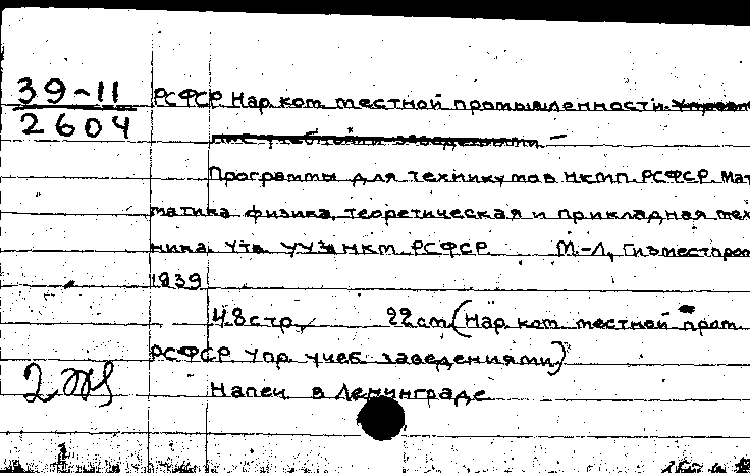 39-11
2604
РСФСР. Нар. ком. местной промышленности. Управле
ние учебными заведениями. —
Программы для техникумов НКМП РСФСР. Мат
матика, физика, теоретическая и прикладная мех
ника. Утв. УУЗ НКМ РСФСР М.-Л., Гизместпром
1939
48 стр., 22 см (Нар. ком. местной пром.
РСФСР. Упр. учеб. заведениями)
Напеч. в Ленинграде